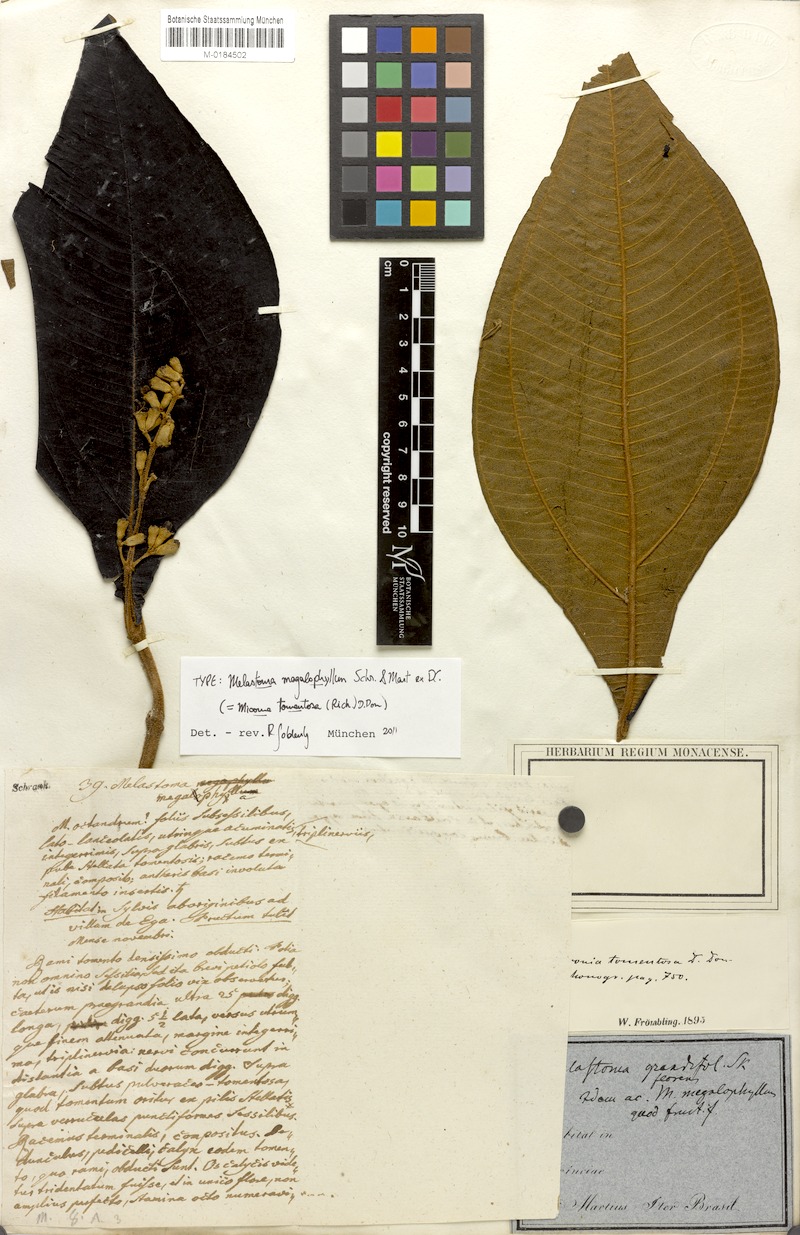 Botanische Staatssammlung München
M-0184502
cm
0
1
2
3
4
5
6
7
8
9
10
copyright reserved
BOTANISCHE
STAATSSAMMLUNG
MÜNCHEN
TYPE: Melastoma megalophyllum Schr. & Mart ex DC.
(= Miconia tomentosa (Rich.) D.Don)
Det. - rev. R Goldenberg München 2011
HERBARIUM REGIUM MONACENSE.
Schrank.
39. Melastoma megaphyllu
megalophyllum
M. octandrum! foliis subsessilibus,
lato-lanceolatis, utrinque acuminatis, triplinerviis,
integerrimis, supra glabris, subtus en
pube stellata tomentosis; racemo termi,
nali, composito; antheris basi involuta
filamento insertis. ♄
Habitat in sylvis aboriginibus ad
villam de Ega. Fructum tulit
Mense novembri.
Rami tomento densissimo obducti. Folia
non omnino sessilia, sed ita brevi petiolo ful-
ta, ut is nisi delapso folio vix observetur,
caeterum praegrandia ultra 25 digg.
longa, digg. 5½ lata, versus utrum,
que finem attenuata, margine integerri,
mo, triplinervia: nervi concurrunt in
distantia a basi duorum digg. supra
glabra, subtus pulveraceo-tomentosa,
quod tomentum oritur ex pilis stellatis
supra verruculas punctiformes sessilibus.
Racemus terminalis, compositus. Pe-
dunculus, pedicelli, calyx eodem tomen,
to, quo rami, obducti sunt. Os calycis vide,
tur tridentatum fuisse, et in unico flore, non
amplius perfecto, stamina octo numeravi,
M. 8. A. 3
onia tomentosa D. Don
Monogr. pag. 750.
W. Frömbling. 1895
lastoma grandifol. Sk
florens
Idem ac. M. megalophyllum
quod fruct. f
bitat in
vinciae
Martius Iter Brasil.